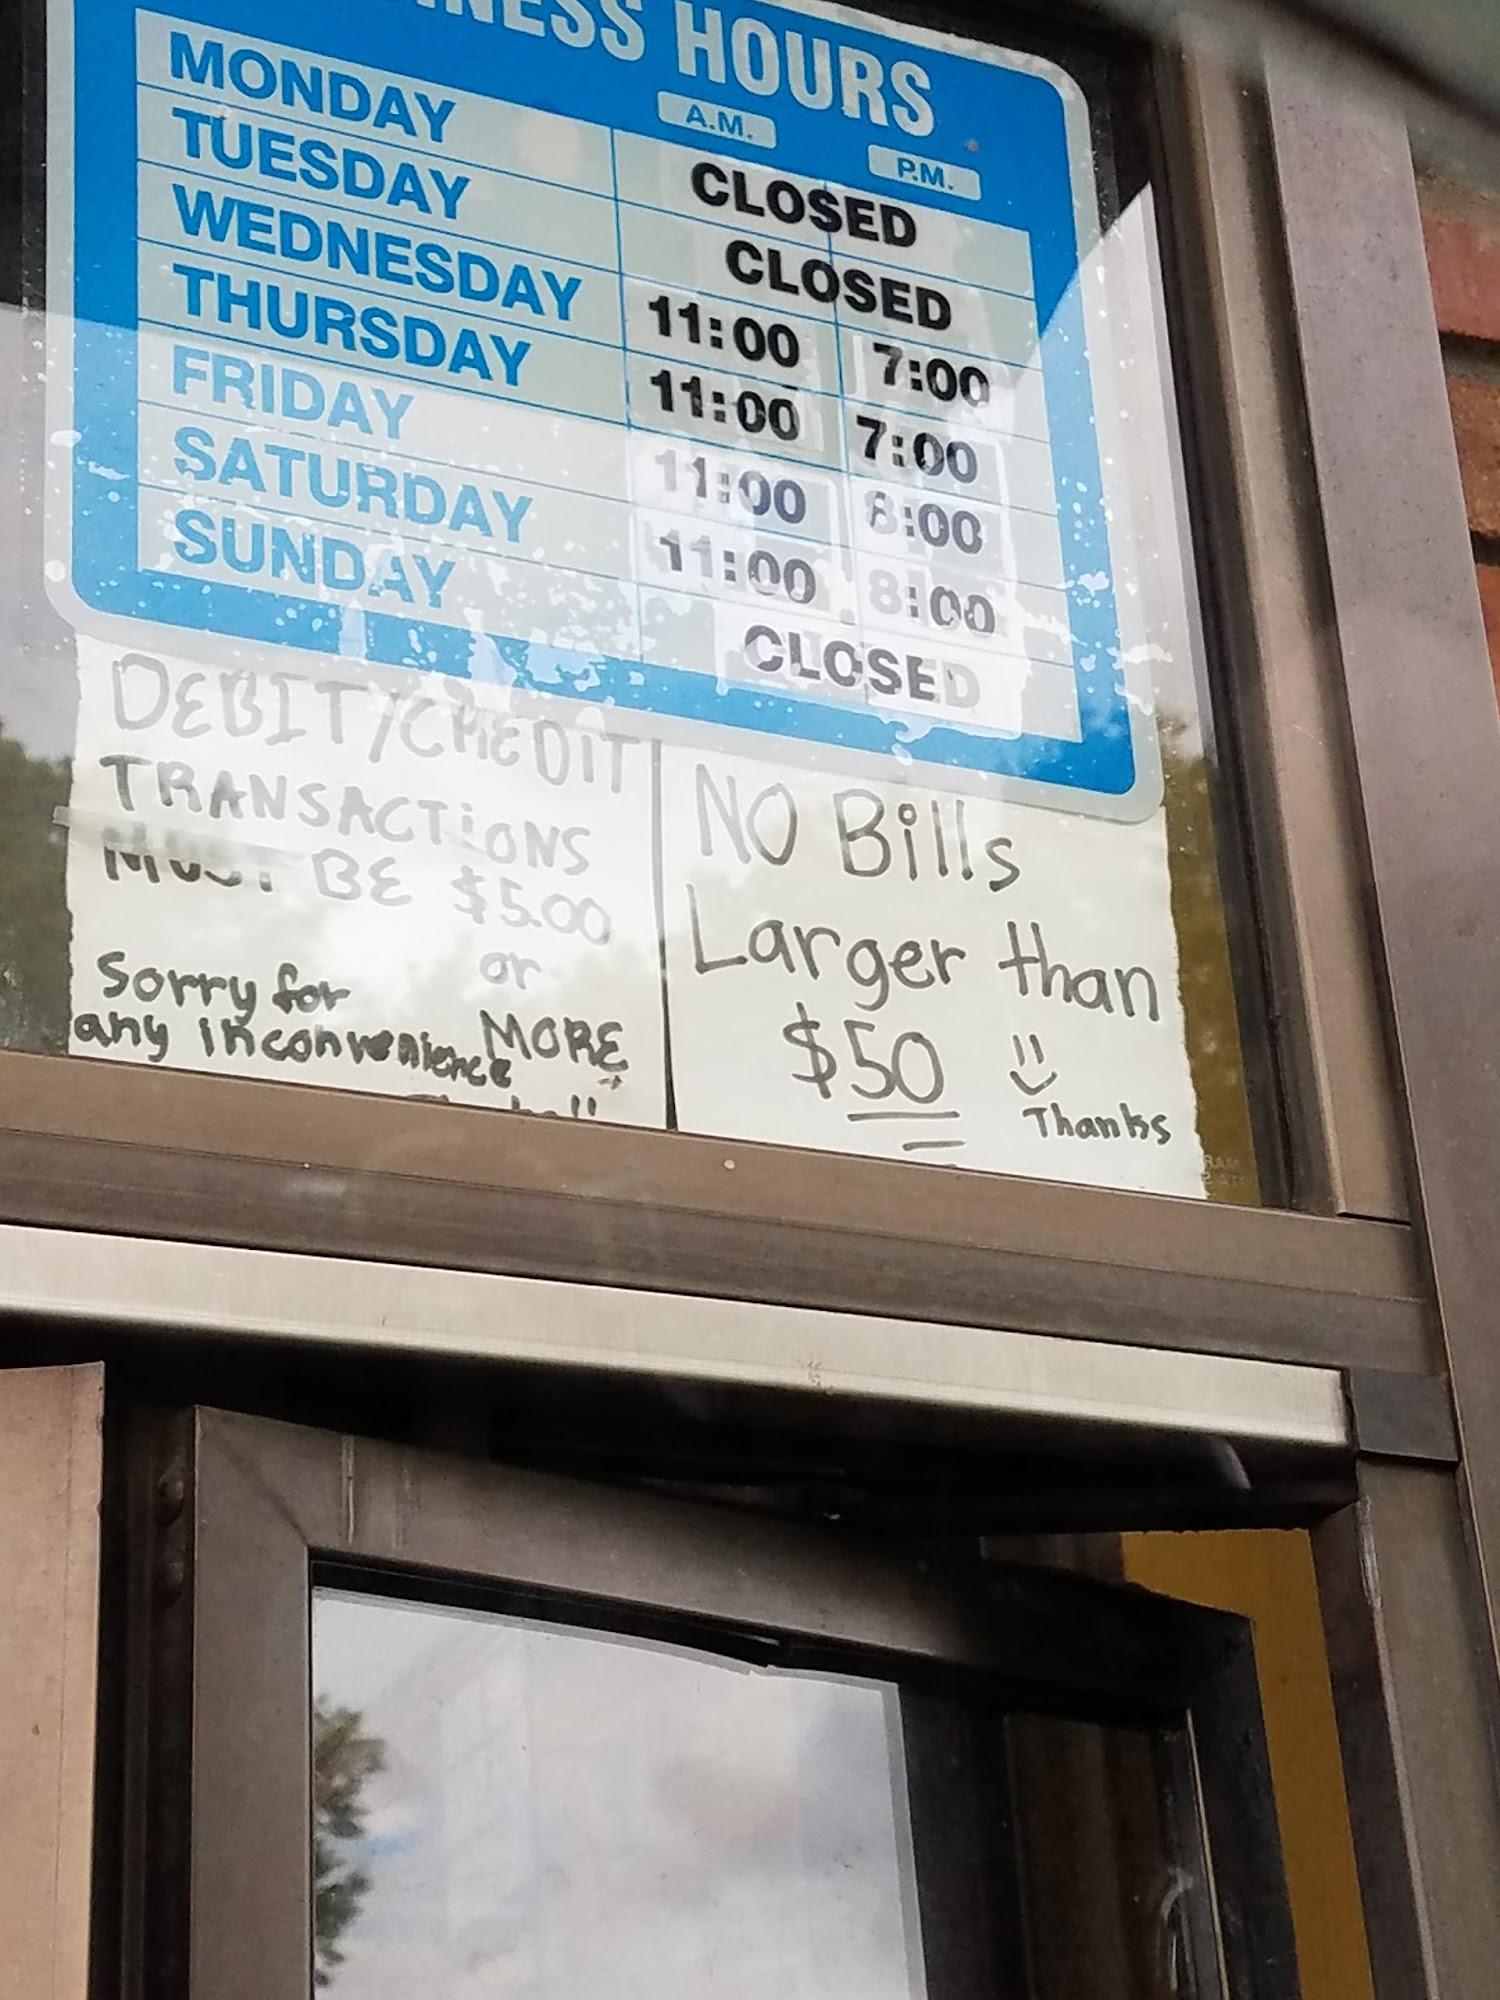 HOURS
A.M. P.M.
MONDAY CLOSED
TUESDAY CLOSED
WEDNESDAY 11:00 7:00
THURSDAY 11:00 7:00
FRIDAY 11:00 8:00
SATURDAY 11:00 8:00
SUNDAY CLOSED
DEBIT/CREDIT
TRANSACTIONS
MUST BE $5.00
or
MORE
Sorry for
any inconvenience
NO Bills
Larger than
$50
Thanks